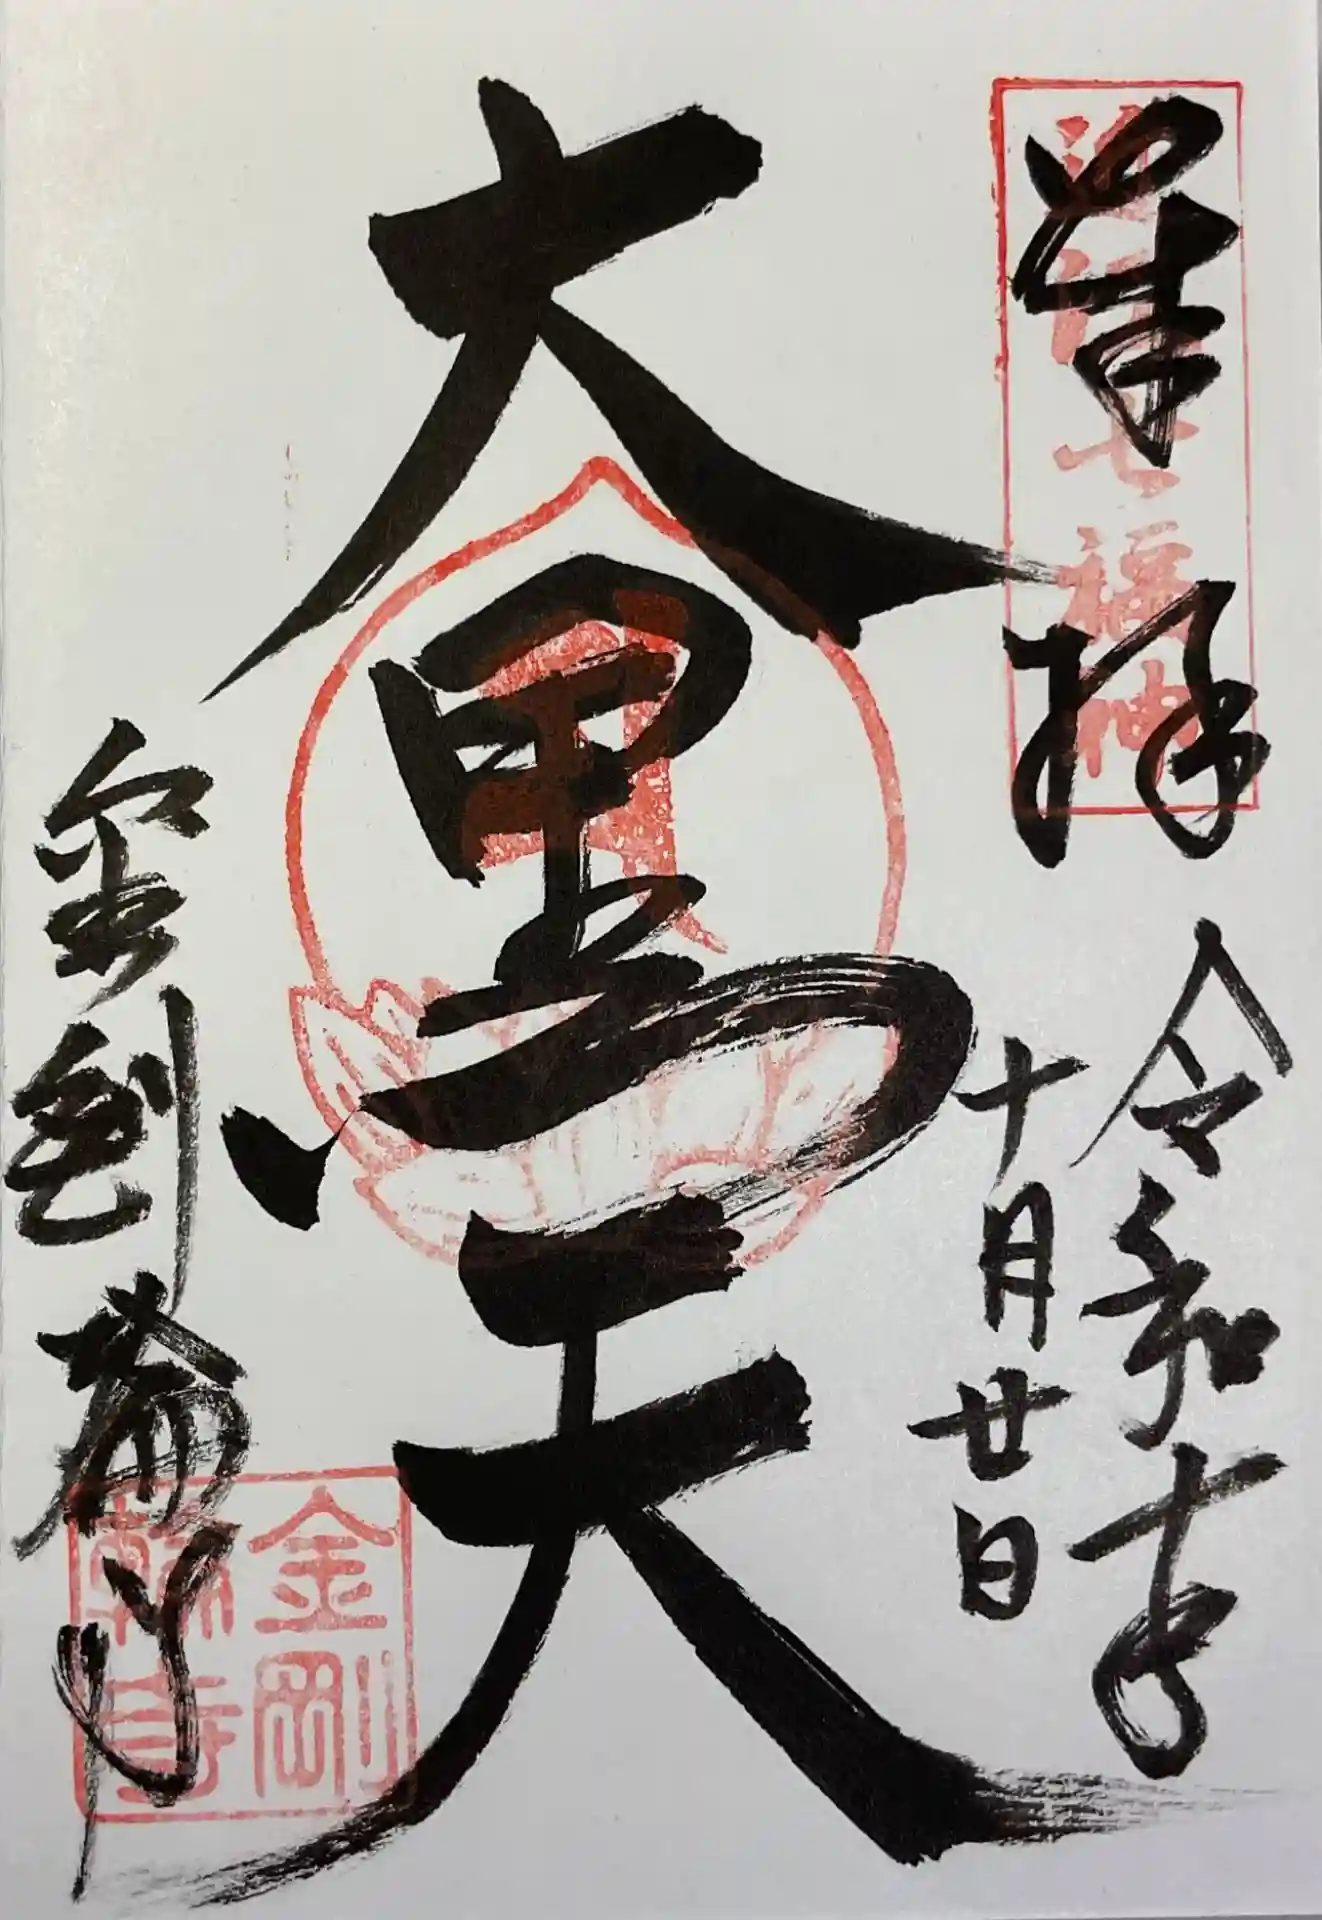 近江七福神
奉拝
令和年
十月廿日
大黒天
金剛輪寺
金剛
輪寺